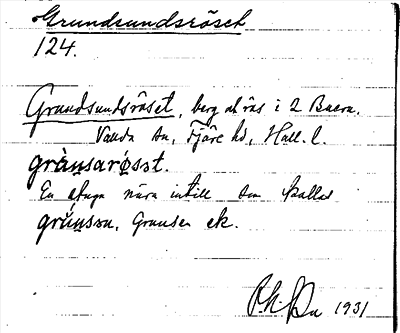 Grundsundsröset
124.
Grundsundsröset, berg ok rös i 2 Buera.
Vanda sn, Fjäre hd, Hall. l.
grùnsarøsət.
En stuga nära intill som kallas
grúnsən, Grunsen ek.
1931